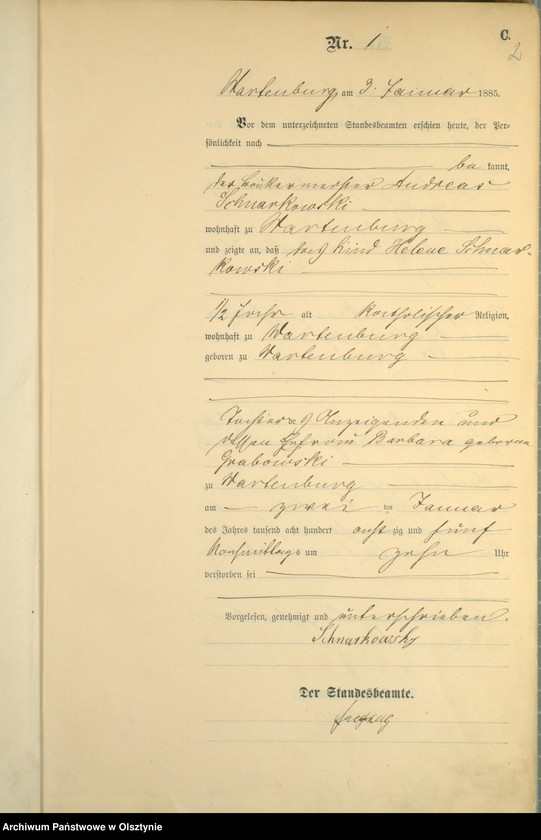 Nr. 1
C.
2
Wartenburg, am 3. Januar 1885.
Vor dem unterzeichneten Standesbeamten erschien heute, der Per-
sönlichkeit nach
bekannt,
der Andreas
Schnarkowski
wohnhaft zu Wartenburg
und zeigte an, daß das Kind Helene Schnar-
kowski
1 1/2 Jahr alt katholischer Religion,
wohnhaft zu Wartenburg
geboren zu Wartenburg
Tochter des Anzeigenden und
dessen Ehefrau Barbara geborne
Grabowski
zu Wartenburg
am zwei ten Januar
des Jahres tausend acht hundert achtzig und fünf
Nachmittags um zehn Uhr
verstorben sei
Vorgelesen, genehmigt und unterschrieben.
Schnarkowsky
Der Standesbeamte.
Archiwum Państwowe w Olsztynie